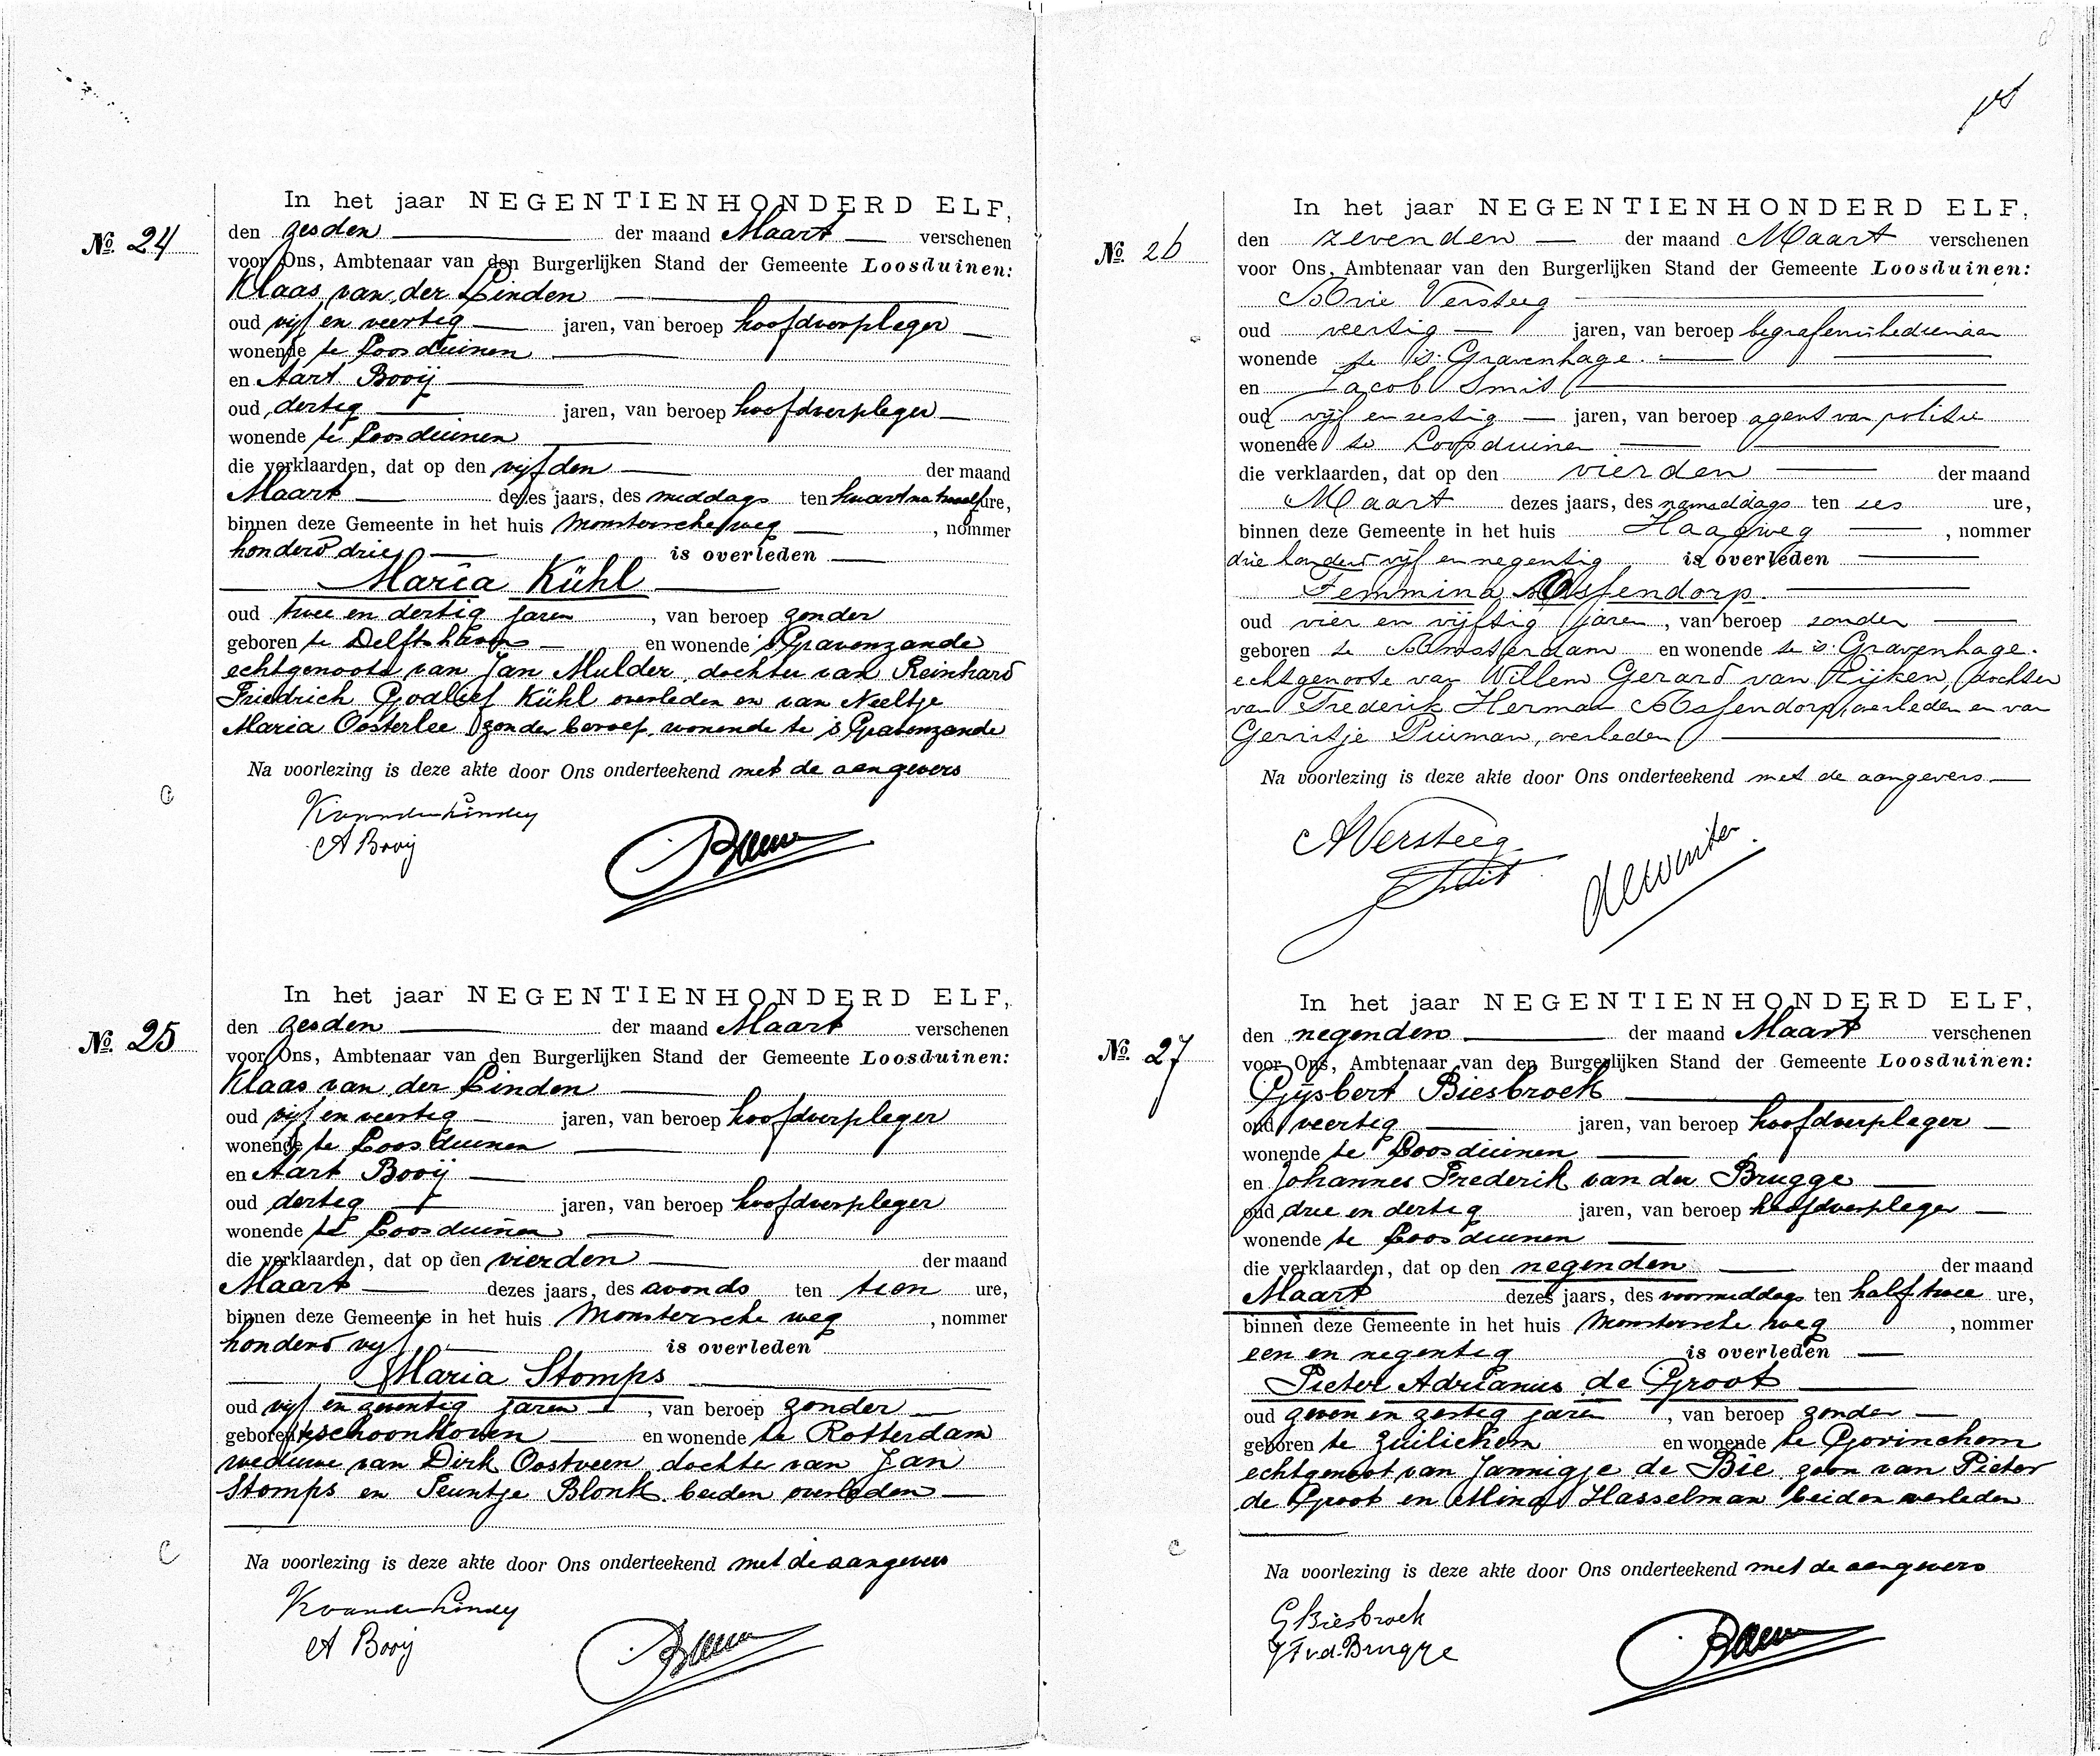 In het jaar NEGENTIENHONDERD ELF,
No. 24
den zesden der maand Maart verschenen
voor Ons, Ambtenaar van den Burgerlijken Stand der Gemeente Loosduinen:
Klaas van der Linden
oud vijf en veertig jaren, van beroep hoofdverpleger
wonende te Loosduinen
en Aart Booij
oud dertig jaren, van beroep hoofdverpleger
wonende te Loosduinen
die verklaarden, dat op den vijfden der maand
Maart dezes jaars, des middags ten kwart na twaalf ure,
binnen deze Gemeente in het huis Monstersche weg, nommer
honderd drie is overleden
Maria Kühl
oud twee en dertig jaren, van beroep zonder
geboren te Delftshaven en wonende 's Gravenzande
echtgenoote van Jan Mulder, dochter van Reinhard
Friedrich Godlief Kühl overleden en van Neeltje
Maria Oosterlee zonder beroep, wonende te 's Gravenzande
Na voorlezing is deze akte door Ons onderteekend met de aangevers
K van der Linden
A Booij
In het jaar NEGENTIENHONDERD ELF,
No. 25
den zesden der maand Maart verschenen
voor Ons, Ambtenaar van den Burgerlijken Stand der Gemeente Loosduinen:
Klaas van der Linden
oud vijf en veertig jaren, van beroep hoofdverpleger
wonende te Loosduinen
en Aart Booij
oud dertig jaren, van beroep hoofdverpleger
wonende te Loosduinen
die verklaarden, dat op den vierden der maand
Maart dezes jaars, des avonds ten tien ure,
binnen deze Gemeente in het huis Monstersche weg, nommer
honderd vijf is overleden
Maria Stomps
oud vijf en zeventig jaren, van beroep zonder
geboren te Schoonhoven en wonende te Rotterdam
weduwe van Dirk Oostveen, dochter van Jan
Stomps en Teuntje Blonk, beiden overleden
Na voorlezing is deze akte door Ons onderteekend met de aangevers
K van der Linden
A Booij
In het jaar NEGENTIENHONDERD ELF,
No. 26
den zevenden der maand Maart verschenen
voor Ons, Ambtenaar van den Burgerlijken Stand der Gemeente Loosduinen:
Arie Versteeg
oud veertig jaren, van beroep begrafenisbedienaar
wonende te 's Gravenhage.
en Jacob Smit
oud vijf en zestig jaren, van beroep agent van politie
wonende te Loosduinen
die verklaarden, dat op den vierden der maand
Maart dezes jaars, des namiddags ten zes ure,
binnen deze Gemeente in het huis Haagweg, nommer
drie honderd vijf en negentig is overleden
Femmina Assendorp.
oud vier en vijftig jaren, van beroep zonder
geboren te Amsterdam en wonende te 's Gravenhage.
echtgenoote van Willem Gerard van Rijken, dochter
van Frederik Herman Assendorp, overleden en van
Gerritje Puiman, overleden
Na voorlezing is deze akte door Ons onderteekend met de aangevers
A Versteeg
J Smit
de Winter
In het jaar NEGENTIENHONDERD ELF,
No. 27
den negenden der maand Maart verschenen
voor Ons, Ambtenaar van den Burgerlijken Stand der Gemeente Loosduinen:
Gijsbert Biesbroek
oud veertig jaren, van beroep hoofdverpleger
wonende te Loosduinen
en Johannes Frederik van der Brugge
oud drie en dertig jaren, van beroep hoofdverpleger
wonende te Loosduinen
die verklaarden, dat op den negenden der maand
Maart dezes jaars, des voormiddags ten half twee ure,
binnen deze Gemeente in het huis Monstersche weg, nommer
een en negentig is overleden
Pieter Adrianus de Groot
oud zeven en zestig jaren, van beroep zonder
geboren te Zuilichem en wonende te Gorinchem
echtgenoot van Jannigje de Bie, zoon van Pieter
de Groot en Alina Hasselman beiden overleden
Na voorlezing is deze akte door Ons onderteekend met de aangevers
G Biesbroek
J F v.d. Brugge